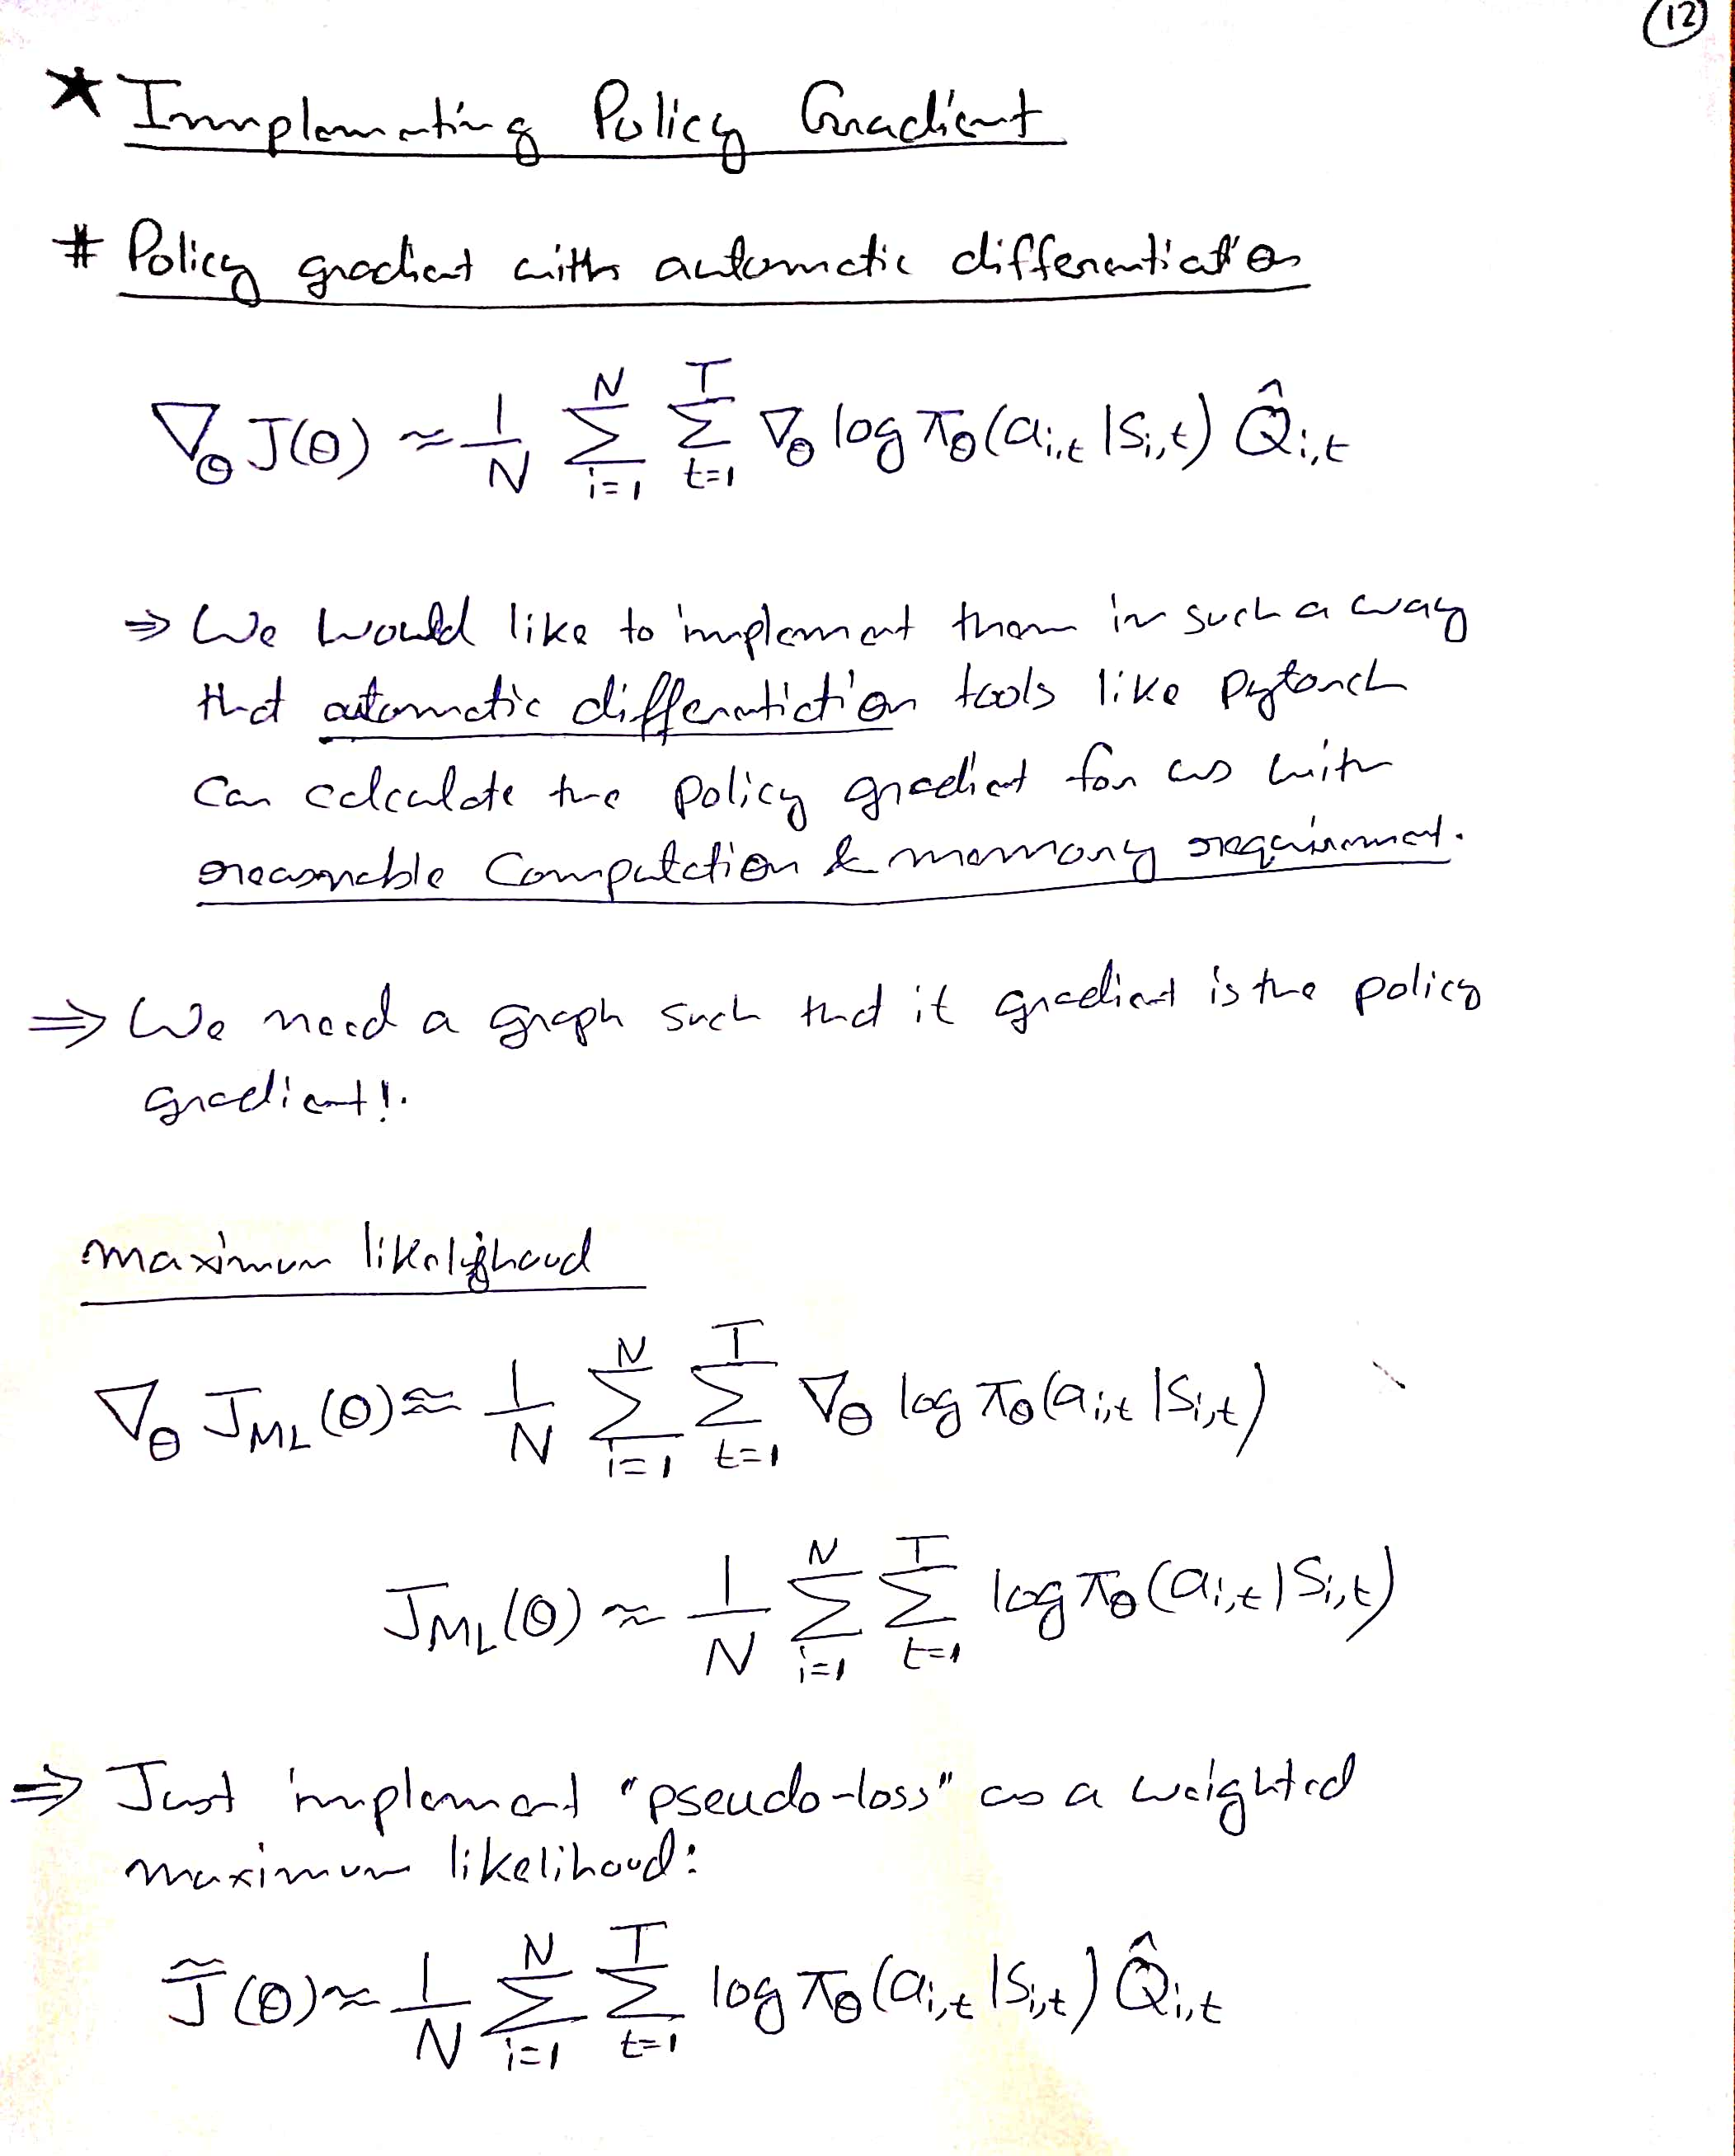 (12)
★ Implementing Policy Gradient
# Policy gradient with automatic differentiation
∇_θ J(θ) ≈ 1/N Σ_{i=1}^{N} Σ_{t=1}^{T} ∇_θ log π_θ(a_{i,t} | s_{i,t}) Q̂_{i,t}
⇒ We would like to implement them in such a way
that automatic differentiation tools like pytorch
can calculate the policy gradient for us with
reasonable computation & memory requirement.
⇒ We need a graph such that it gradient is the policy
gradient!.
maximum likelighood
∇_θ J_{ML}(θ) ≈ 1/N Σ_{i=1}^{N} Σ_{t=1}^{T} ∇_θ log π_θ(a_{i,t} | s_{i,t})
J_{ML}(θ) ≈ 1/N Σ_{i=1}^{N} Σ_{t=1}^{T} log π_θ(a_{i,t} | s_{i,t})
⇒ Just implement "pseudo-loss" as a weighted
maximum likelihood:
J̃(θ) ≈ 1/N Σ_{i=1}^{N} Σ_{t=1}^{T} log π_θ(a_{i,t} | s_{i,t}) Q̂_{i,t}